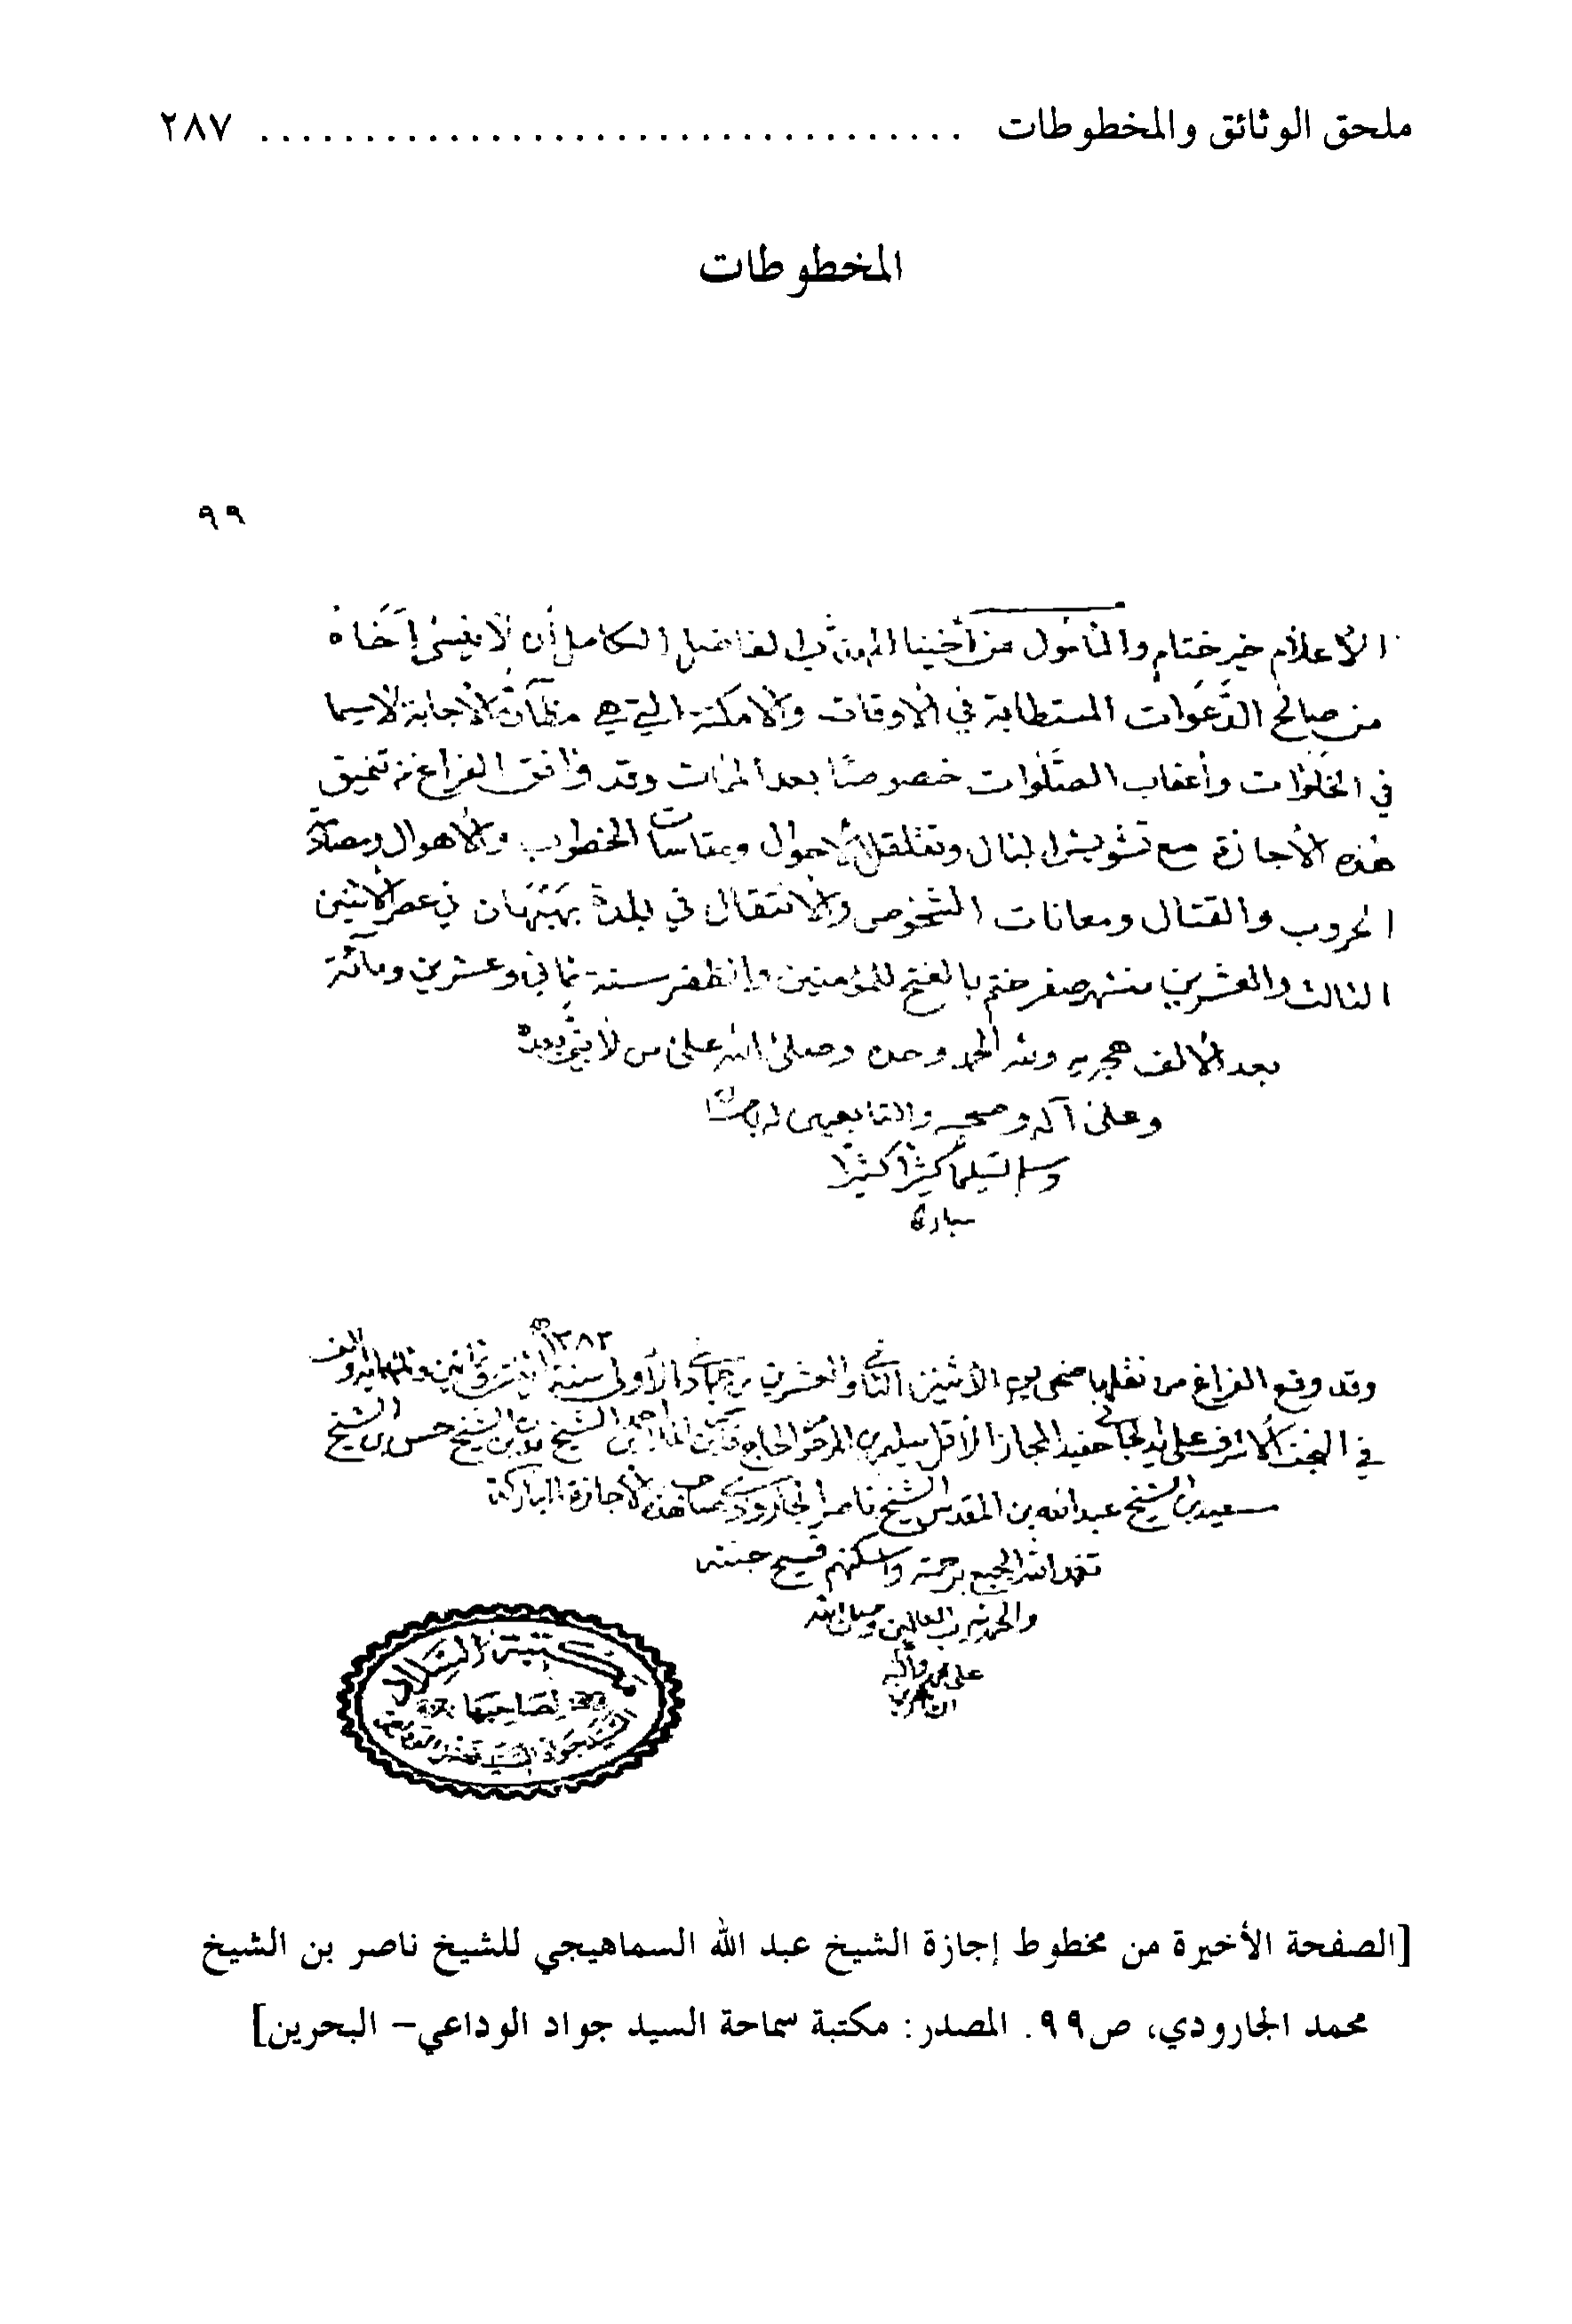 ملحق الوثائق والمخطوطات .................................. ٢٨٧
المخطوطات
٩٩
الأعلام خير ختام والمأمول من أخينا المهذب الفاضل الكامل أن لا ينسى إخاه
من صالح الدعوات المستطابة في الأوقات والأمكنة التي هي مظان الأجابة لاسيما
في الخلوات وأعقاب الصلوات خصوصًا بعد المات وقد وافق الفراغ من تنميق
هذه الأجازة مع تشويش البال وتقلقل الأحوال ومقاسات الخطوب والأهوال ومصادمة
الحروب والقتال ومعانات الشخوص والأنتقال في بلدة بهبهان في عصر الأثنين
الثالث والعشرين من شهر صفر ختم بالفتح للمؤمنين والظفر سنة ثماني وعشرين ومائة
بعد الألف هجريه ولله الحمد وحده وصلى الله على من لا نبي بعده
وعلى آله وصحبه والتابعين
وسلم تسليما كثيرًا كثيرًا
١٣٨٢
وقد وقع الفراغ من نقلها ضحى يوم الأثنين الثاني والعشرين من جمادي الأولى سنة وثمانين وثلثمايه والف
في النجف الأشرف على يد حفيد المجاز الأقل المرحوم الحاج أحمد بن الشيخ بن الشيخ حسن بن الشيخ
سعيد بن الشيخ عبدالله بن المقدس الشيخ ناصر الجارودي صاحب هذه الأجازة المباركة
تغمد الله الجميع برحمته واسكنهم فسيح جنته
والحمد لله رب العالمين وصلى الله
على محمد وآله
مكتبة السيد
لصاحبها
السيد جواد السيد فضل الوداعي
[الصفحة الأخيرة من مخطوط إجازة الشيخ عبد الله السماهيجي للشيخ ناصر بن الشيخ
محمد الجارودي، ص٩٩. المصدر: مكتبة سماحة السيد جواد الوداعي- البحرين]